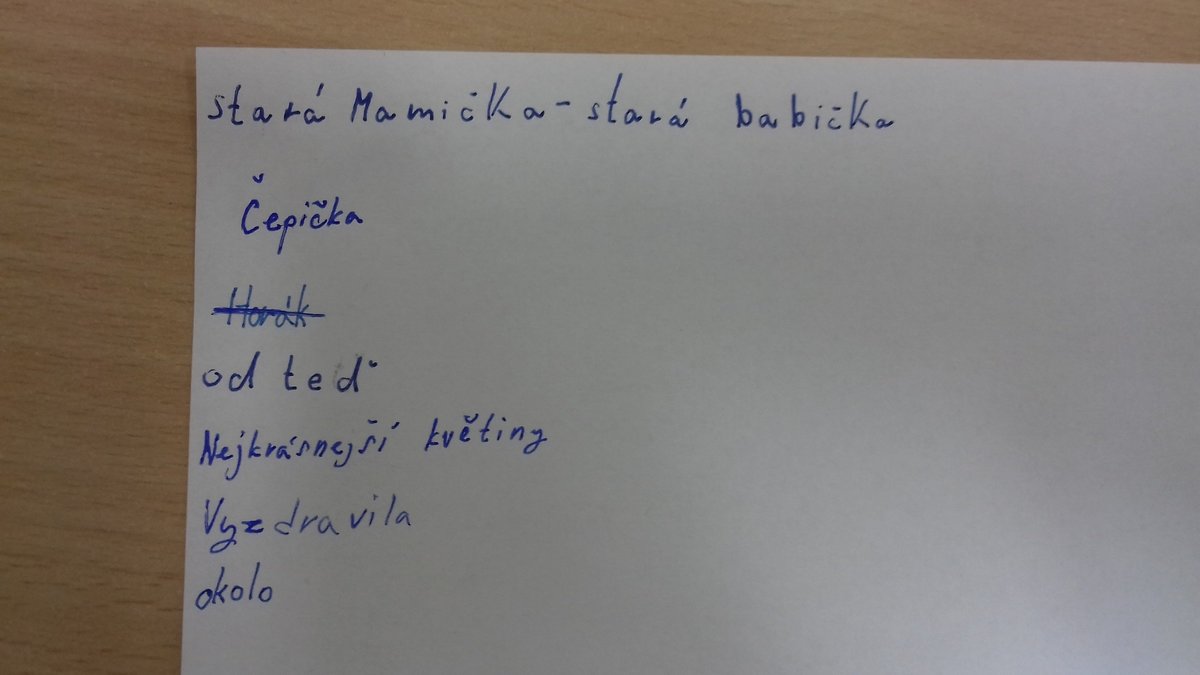 stará Mamička - stará babička
Čepička
Horák
od teď
Nejkrásnejší květiny
Vyzdravila
okolo